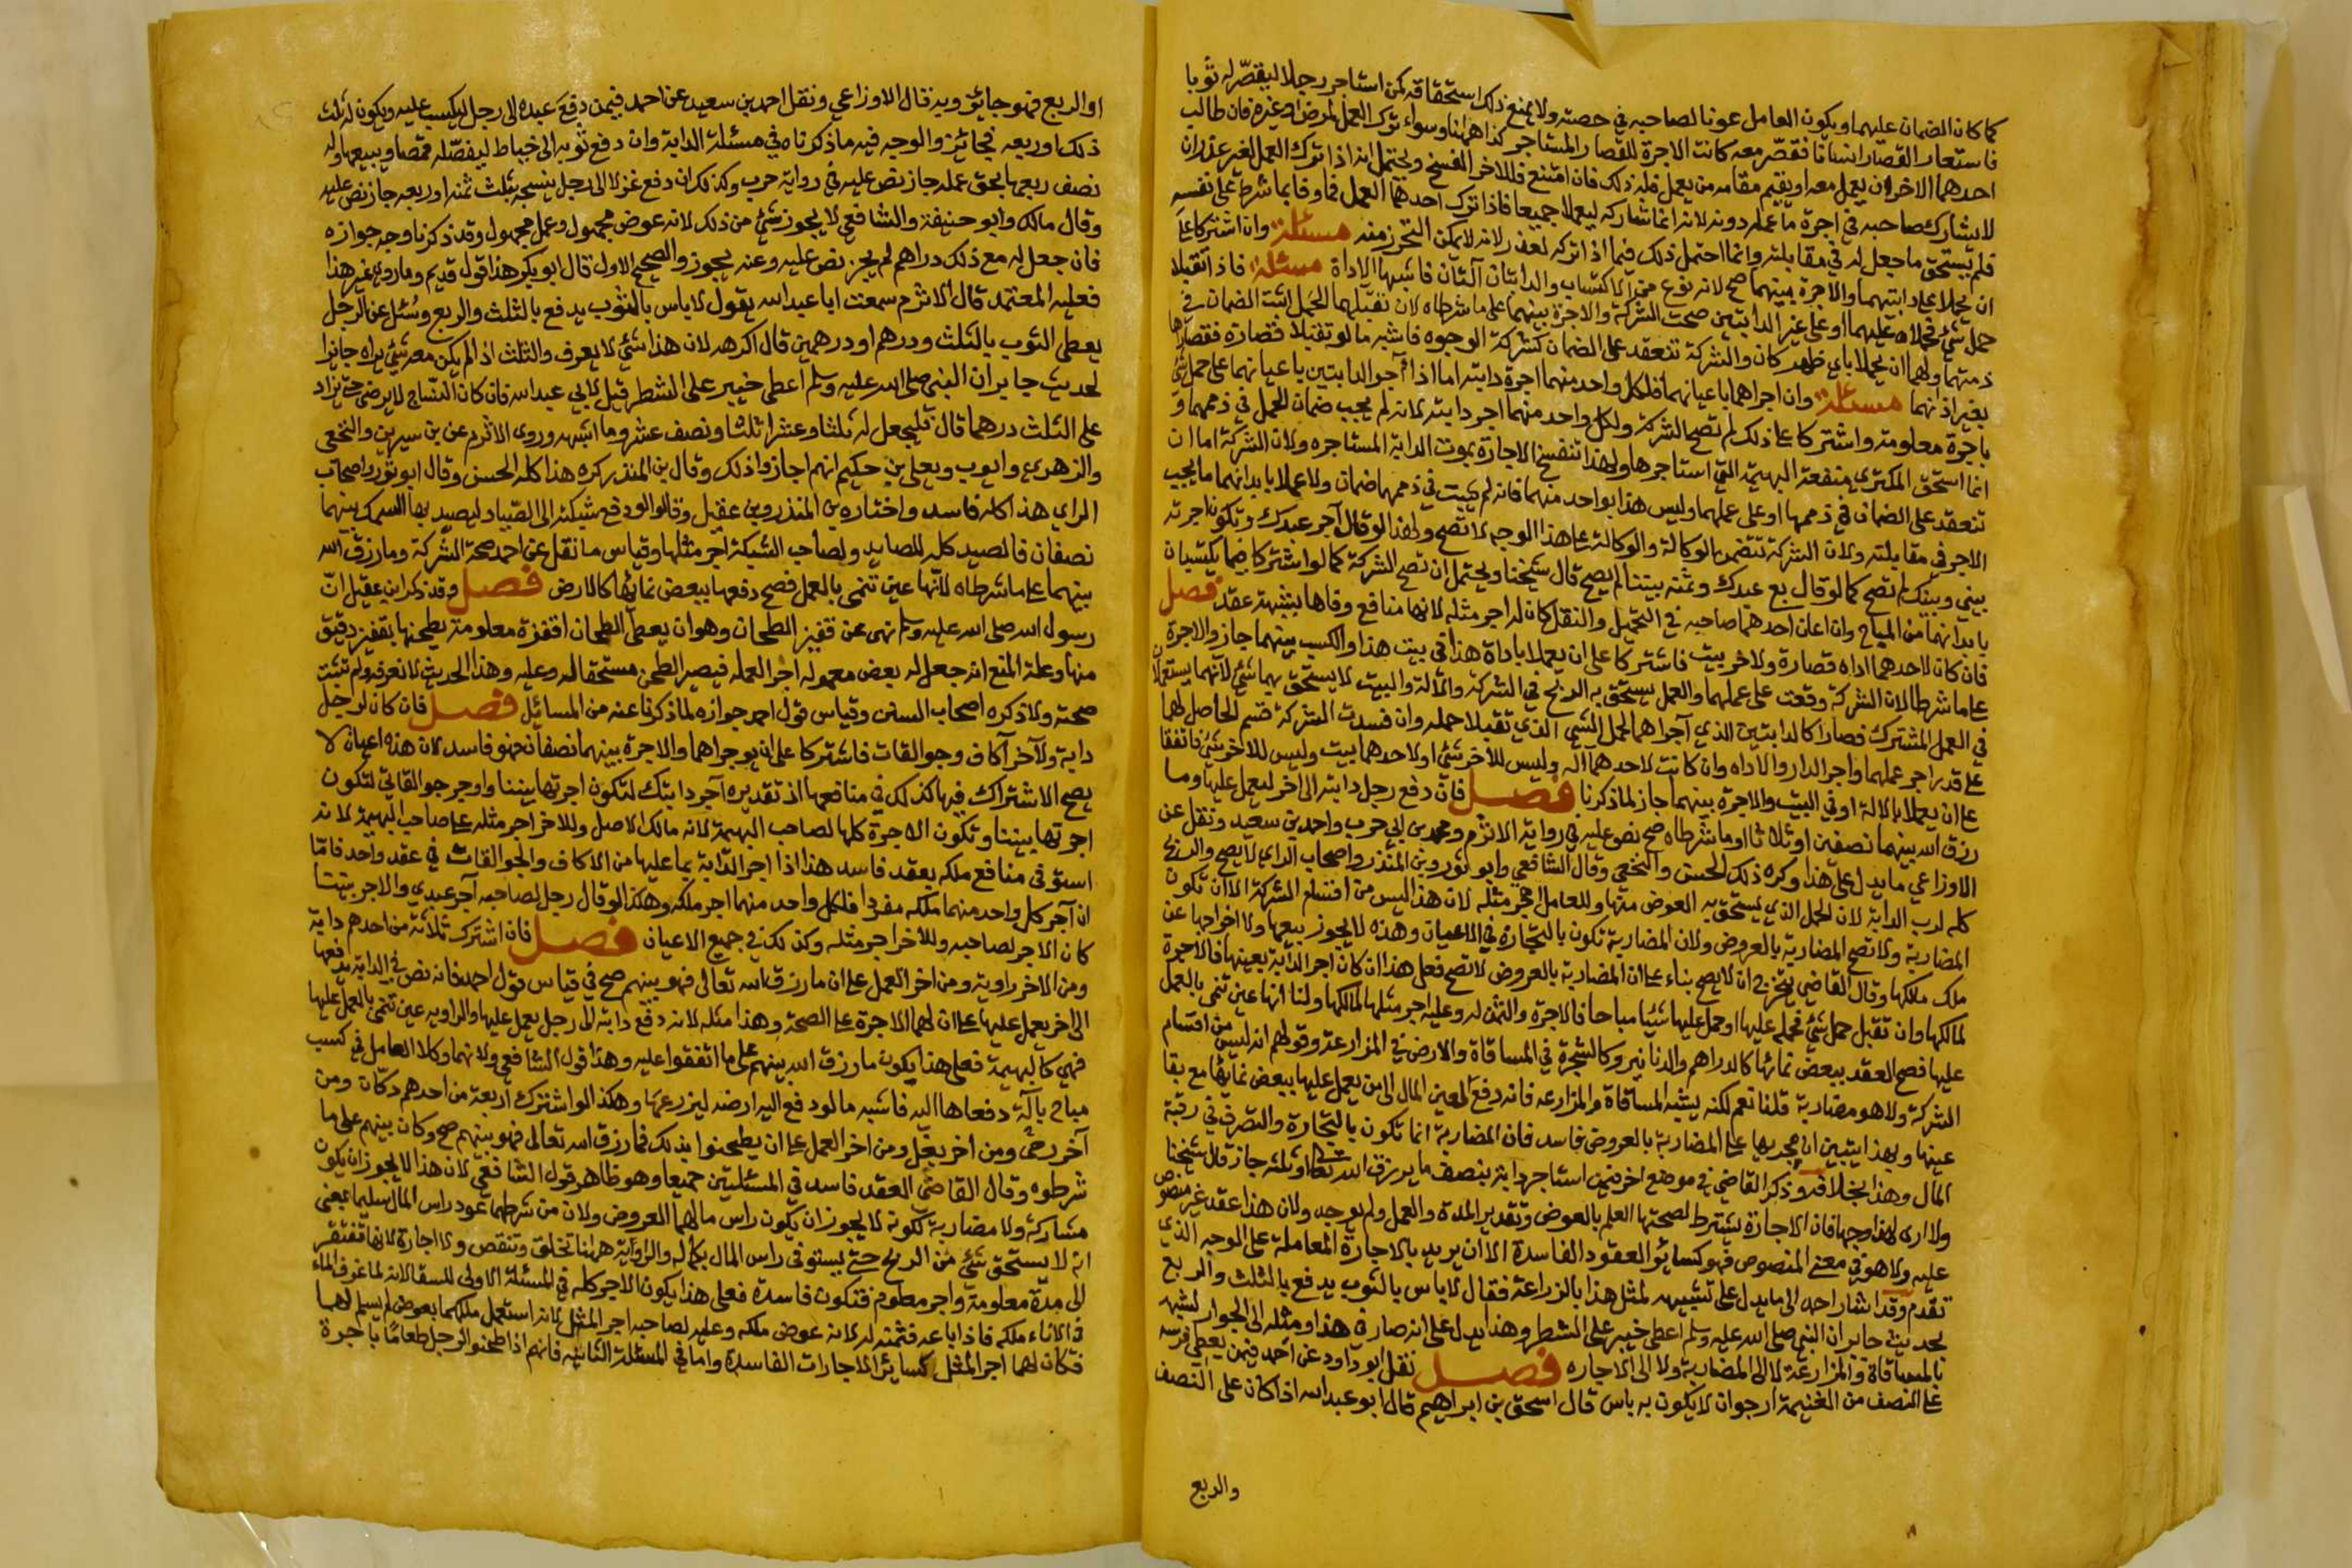 كما كان الضمان عليهما ويكون العامل عونا لصاحبه في حصته ولا يمنع ذلك استحقاقه كمن استاجر رجلا ليقصر له ثوبا
فاستعان القصار انسانا فقصر معه كانت الاجرة للقصار المستاجر كذا هاهنا وسواء ترك العمل لمرض او غيره فان طالب
احدهما الاخر ان يعمل معه او يقيم مقامه من يعمل فله ذلك فان امتنع فللاخر الفسخ ويحتمل انه اذا ترك العمل لغير عذر ان
لا يشارك صاحبه في اجرة ما عمله دونه لانه انما شاركه ليعملا جميعا فاذا ترك احدهما العمل فما وفا بما شرط على نفسه
فلم يستحق ما جعل له في مقابلته وانما احتمل ذلك فيما اذا تركه لعذر لانه لا يمكن التحرز منه مسئلة وان اشتركا على
ان يحملا على دابتيهما والاجرة بينهما صح لانه نوع من الاكتساب والدابتان آلتان فاشبها الاداة مسئلة فاذا تقبلا
حمل شئ فحملاه عليهما او على غير الدابتين صحت الشركة والاجرة بينهما على ما شرطاه لان تقبلهما الحمل اثبت الضمان في
ذمتهما ولهما ان يحملا باي ظهر كان والشركة تنعقد على الضمان كشركة الوجوه فاشبه ما لو تقبلا قصارة فقصراها
بغير اذنهما مسئلة وان اجراهما باعيانهما فلكل واحد منهما اجرة دابته اما اذا آجرا الدابتين باعيانهما على حمل شئ
باجرة معلومة واشتركا على ذلك لم تصح الشركة ولكل واحد منهما اجر دابته لانه لم يجب ضمان الحمل في ذممهما و
انما استحق المكتري منفعة البهيمة التي استاجرها ولهذا تنفسخ الاجارة بموت الدابة المستاجره ولان الشركة اما ان
تنعقد على الضمان في ذممهما او على عملهما وليس هذا بواحد منهما فانه لم يثبت في ذممهما ضمان ولا عملا بابدانهما ما يجب
الاجر في مقابلته ولان الشركة تتضمن الوكالة والوكالة على هذا الوجه لا تصح ولهذا لو قال آجر عبدك وتكون اجرته
بيني وبينك لم تصح كما لو قال بع عبدك وثمنه بيننا لم يصح قال شيخنا ويحتمل ان تصح الشركة كما لو اشتركا فيما يكتسبان
بابدانهما من المباح وان اعان احدهما صاحبه في التحميل والنقل كان له اجر مثله لانها منافع وفاها بشبهة عقد فصل
فان كان لاحدهما اداة قصارة ولاخر بيت فاشتركا على ان يعملا باداة هذا في بيت هذا والكسب بينهما جاز والاجرة
على ما شرطا لان الشركة وقعت على عملهما والعمل يستحق به الربح في الشركة والآلة والبيت لا يستحق بهما شئ لانهما يستعملان
في العمل المشترك فصارا كالدابتين الذي آجراهما لحمل الشئ الذي تقبلا حمله وان فسدت الشركة قسم الحاصل لهما
على قدر اجر عملهما واجر الدار والاداه وان كانت لاحدهما آلة وليس للاخر شئ او لاحدهما بيت وليس للاخر شئ فاتفقا
على ان يعملا بالالة او في البيت والاجرة بينهما جاز لما ذكرنا فصل فان دفع رجل دابته الى اخر ليعمل عليها وما
رزق الله بينهما نصفين او ثلاثا او ما شرطاه صح نص عليه في رواية الاثرم ومحمد بن ابي حرب واحمد بن سعيد ونقل عن
الاوزاعي ما يدل على هذا وكره ذلك الحسن والنخعي وقال الشافعي وابو ثور وبن المنذر واصحاب الراي لا يصح والربح
كله لرب الدابة لان الحمل الذي يستحق به العوض منها وللعامل اجر مثله لان هذا ليس من اقسام الشركة الا ان تكون
المضاربة ولا تصح المضاربة بالعروض ولان المضاربة تكون بالتجارة في الاعيان وهذه لا يجوز بيعها ولا اخراجها عن
ملك مالكها وقال القاضي يتخرج ان لا يصح بناء على ان المضاربة بالعروض لا تصح فعلى هذا ان كان اجر الدابة بعينها فالاجرة
لمالكها وان تقبل حمل شئ فحمله عليها او حمل عليها شيئا مباحا فالاجرة والثمن له وعليه اجر مثلها لمالكها ولنا انها عين تنمى بالعمل
عليها فصح العقد ببعض نمائها كالدراهم والدنانير وكالشجرة في المساقاة والارض في المزارعة وقولهم انه ليس من اقسام
الشركة ولا هو مضاربة قلنا نعم لكنه يشبه المساقاة والمزارعه فانه دفع لعين المال الى من يعمل عليها ببعض نمائها مع بقا
عينها وبهذا يتبين ان تخريجها على المضاربة بالعروض فاسد فان المضاربة انما تكون بالتجارة والتصرف في رقبة
المال وهذا بخلافه وذكر القاضي في موضع اخر فيمن استاجر دابة بنصف ما يرزق الله تعا او ثلثه جاز قال شيخنا
ولا ارى لهذا وجها فان الاجارة يشترط لصحتها العلم بالعوض وتقدير المدة والعمل ولم يوجد ولان هذا عقد غير منصوص
عليه ولا هو في معنى المنصوص فهو كسائر العقود الفاسدة الا ان يريد بالاجارة المعاملة على الوجه الذي
تقدم وقد اشار احمد الى ما يدل على تشبيهه لمثل هذا بالزراعة فقال لا باس بالثوب يدفع بالثلث والربع
لحديث جابر ان النبي صلى الله عليه وسلم اعطى خيبر على الشطر وهذا يدل على انه صار في هذا ومثله الى الجواز لشبهه
بالمساقاة والمزارعة لا الى المضاربة ولا الى الاجاره فصل نقل ابو داود عن احمد فيمن يعطي فرسه
على النصف من الغنيمة ارجو ان لا يكون به باس قال اسحق بن ابراهيم قال ابو عبد الله اذا كان على النصف
والربع
او الربع فهو جايز وبه قال الاوزاعي ونقل احمد بن سعيد عن احمد فيمن دفع عبده الى رجل ليكسب عليه ويكون له ثلث
ذلك او ربعه فجائز والوجه فيه ما ذكرناه في مسئلة الدابة وان دفع ثوبه الى خياط ليفصله قمصا ويبيعها وله
نصف ربعها بحق عمله جاز نص عليه في رواية حرب وكذلك ان دفع غزلا الى رجل ينسجه بثلث ثمنه او ربعه جاز نص عليه
وقال مالك وابو حنيفة والشافعي لا يجوز شئ من ذلك لانه عوض مجهول وعمل مجهول وقد ذكرنا وجه جوازه
فان جعل له مع ذلك دراهم لم يجز نص عليه وعنه يجوز والصحيح الاول قال ابو بكر هذا قول قديم وما روي غير هذا
فعليه المعتمد قال الاثرم سمعت ابا عبد الله يقول لا باس بالثوب يدفع بالثلث والربع وسئل عن الرجل
يعطي الثوب بالثلث ودرهم او درهمين قال اكرهه لان هذا شئ لا يعرف والثلث اذا لم يكن معه شئ نراه جائزا
لحديث جابر ان النبي صلى الله عليه وسلم اعطى خيبر على الشطر قيل لابي عبد الله فان كان النساج لا يرضى حتى يزاد
على الثلث درهما قال فليجعل له ثلثا وعشرا ثلثا ونصف عشر وما اشبهه وروى الاثرم عن بن سيرين والنخعي
والزهري وايوب ويعلى بن حكيم انهم اجازوا ذلك وقال بن المنذر كره هذا كله الحسن وقال ابو ثور واصحاب
الراي هذا كله فاسد واختاره بن المنذر وبن عقيل وقالوا لو دفع شبكته الى الصياد ليصيد بها السمك بينهما
نصفان فالصيد كله للصايد ولصاحب الشبكة اجر مثلها وقياس ما نقل عن احمد صحة الشركة وما رزق الله
بينهما على ما شرطاه لانها عين تنمى بالعمل فصح دفعها ببعض نمائها كالارض فصل وقد ذكر ابن عقيل ان
رسول الله صلى الله عليه وسلم نهى عن قفيز الطحان وهو ان يعطي الطحان اقفزة معلومة يطحنها بقفيز دقيق
منها وعلة المنع انه جعل له بعض معموله اجر العمله فيصير الطحن مستحقا له وعليه وهذا الحديث لا نعرفه ولم تثبت
صحته ولا ذكره اصحاب السنن وقياس قول احمد جوازه لما ذكرنا عنه من المسائل فصل فان كان لرجل
دابة ولآخر آكاف وجوالقات فاشتركا على ان يوجراهما والاجرة بينهما نصفان فهو فاسد لان هذه اعيان لا
يصح الاشتراك فيها كذلك في منافعها اذ تقديره آجر دابتك لتكون اجرتها بيننا واوجر جوالقاتي لتكون
اجرتها بيننا وتكون الاجرة كلها لصاحب البهيمة لانه مالك الاصل وللاخر اجر مثله على صاحب البهيمة لانه
استوفى منافع ملكه بعقد فاسد هذا اذا اجر الدابة بما عليها من الاكاف والجوالقات في عقد واحد فاما
ان آجر كل واحد منهما ملكه مفردا فلكل واحد منهما اجر ملكه وهكذا لو قال رجل لصاحبه آجر عبدي والاجر بيننا
كان الاجر لصاحبه وللاخر اجر مثله وكذلك في جميع الاعيان فصل فان اشترك ثلاثة من احدهم دابة
ومن الاخر راوية ومن اخر العمل على ان ما رزق الله تعالى فهو بينهم صح في قياس قول احمد فانه نص في الدابة يدفعها
الى اخر يعمل عليها على ان لهما الاجرة على الصحة وهذا مثله لانه دفع دابة الى رجل يعمل عليها والراويه عين تنمى بالعمل عليها
فهي كالبهيمة فعلى هذا يكون ما رزق الله بينهم على ما اتفقوا عليه وهذا قول الشافعي ولانهما وكلا العامل في كسب
مباح بآلة دفعاها اليه فاشبه ما لو دفع اليه ارضه ليزرعها وهكذا لو اشترك اربعة من احدهم دكان ومن
آخر رحى ومن اخر بغل ومن اخر العمل على ان يطحنوا بذلك فما رزق الله تعالى فهو بينهم صح وكان بينهم على ما
شرطوه وقال القاضي العقد فاسد في المسئلتين جميعا وهو ظاهر قول الشافعي لان هذا لا يجوز ان يكون
مشاركة ولا مضاربة لكونه لا يجوز ان يكون راس مالهما العروض ولان من شرطهما عود راس المال سليما بمعنى
انه لا يستحق شئ من الربح حتى يستوفى راس المال بكماله والراوية هاهنا تخلق وتنقص ولا اجارة لانها تفتقر
الى مدة معلومة واجر معلوم فتكون فاسدة فعلى هذا يكون الاجر كله في المسئلة الاولى للسقا لانه لما غرف الماء
في الاناء ملكه فاذا باعه فثمنه له لانه عوض ملكه وعليه لصاحبه اجر المثل لانه استعمل ملكهما بعوض لم يسلم لهما
فكان لهما اجر المثل كسائر الاجارات الفاسدة واما في المسئلة الثانيه فانهم اذا طحنوا لرجل طعاما باجرة